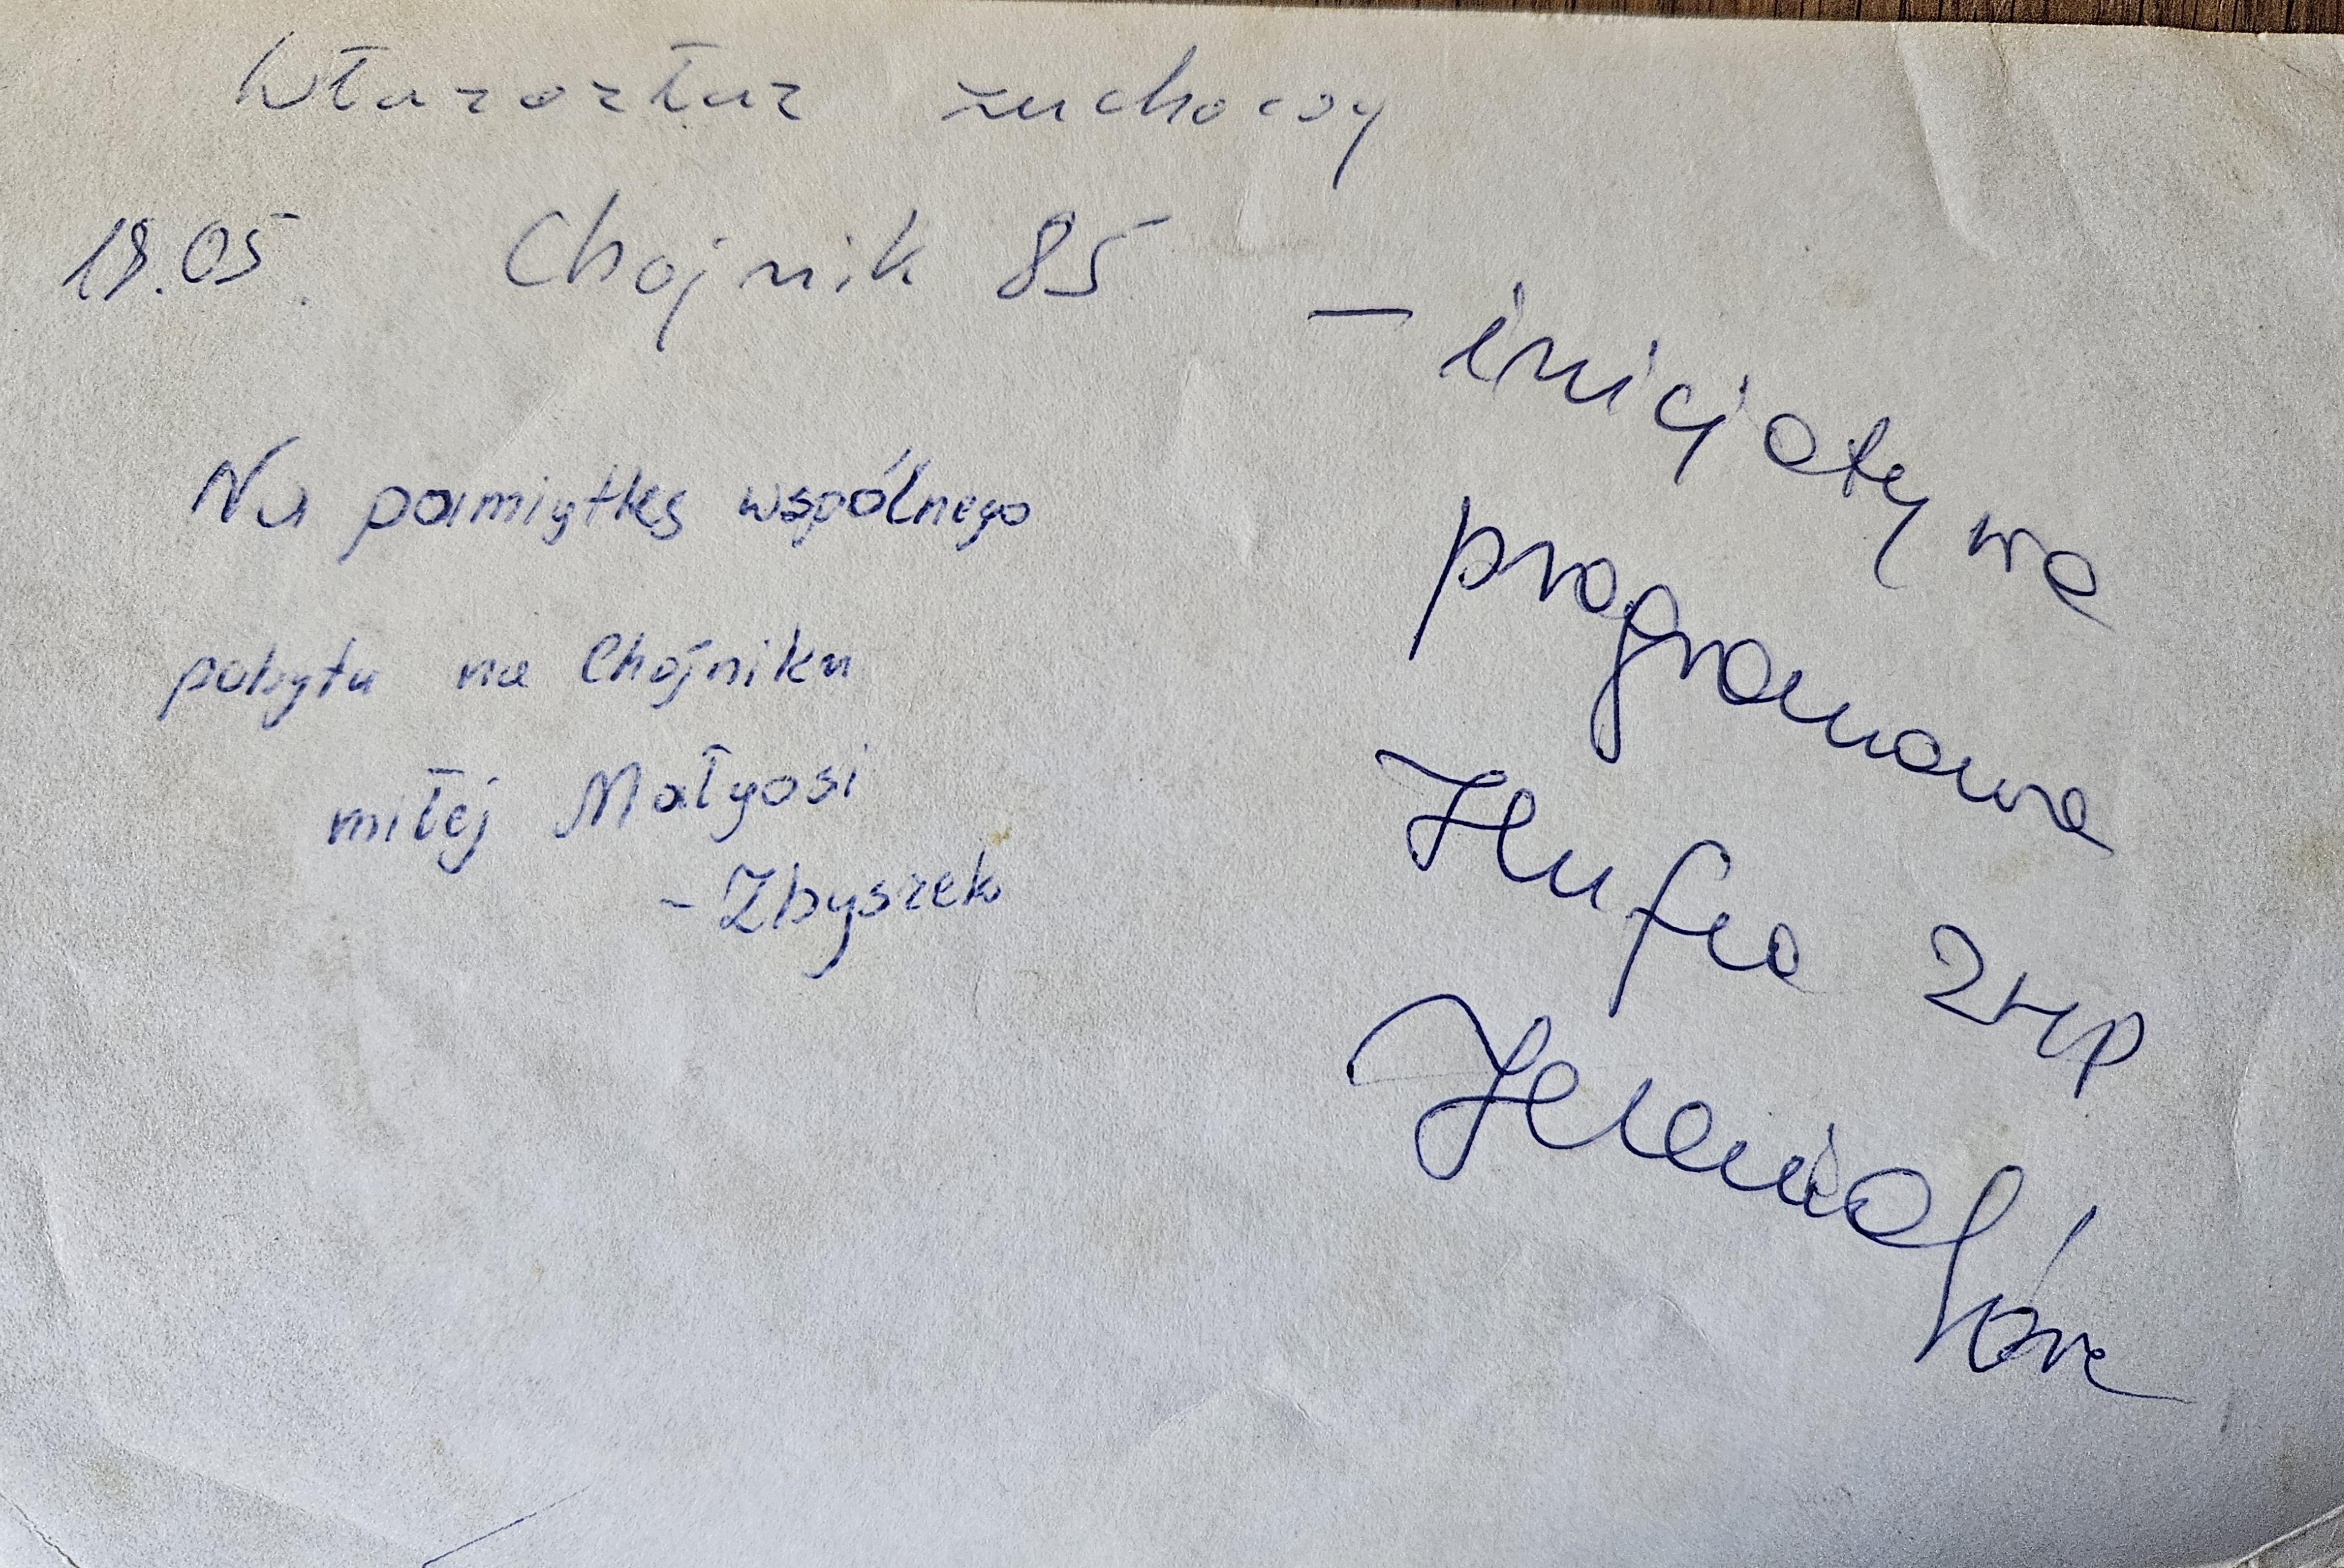 zuchowy
19.05. Chojnik 85
Na pamiątkę wspólnego
pobytu na Chojniku
miłej Małgosi
- Zbyszek
- inicjatywa
programowa
Hufca ZHP
Jelenia Góra